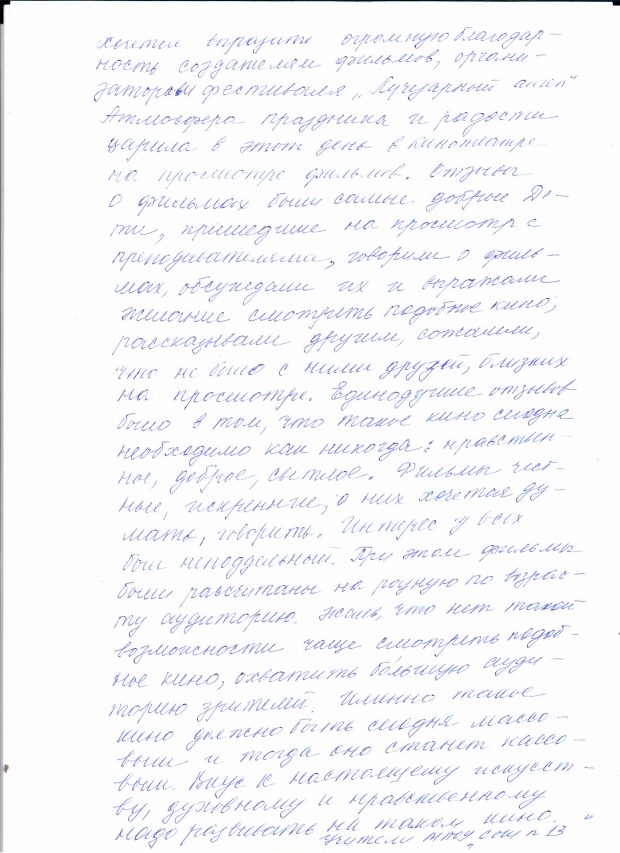 Хочется выразить огромную благодар-
ность создателям фильмов, органи-
заторам фестиваля „Лучезарный ангел"
Атмосфера праздника и радости
царила в этот день в кинотеатре
на просмотре фильмов. Отзывы
о фильмах были самые добрые. Де-
ти, пришедшие на просмотр с
преподавателями, говорили о филь-
мах, обсуждали их и выражали
желание смотреть подобное кино,
рассказывали другим, сожалели,
что не было с ними друзей, близких
на просмотре. Единодушие отзывов
было в том, что такое кино сегодня
необходимо как никогда: нравствен-
ное, доброе, светлое. Фильмы чест-
ные, искренние, о них хочется ду-
мать, говорить. Интерес у всех
был неподдельный. При этом фильмы
были рассчитаны на разную по возрас-
ту аудиторию. Жаль, что нет такой
возможности чаще смотреть подоб-
ное кино, охватить бо́льшую ауди-
торию зрителей. Именно такое
кино должно быть сегодня массо-
вым и тогда оно станет кассо-
вым. Вкус к настоящему искусст-
ву, духовному и нравственному
надо развивать на таком кино.
Учителя СОШ № 13"